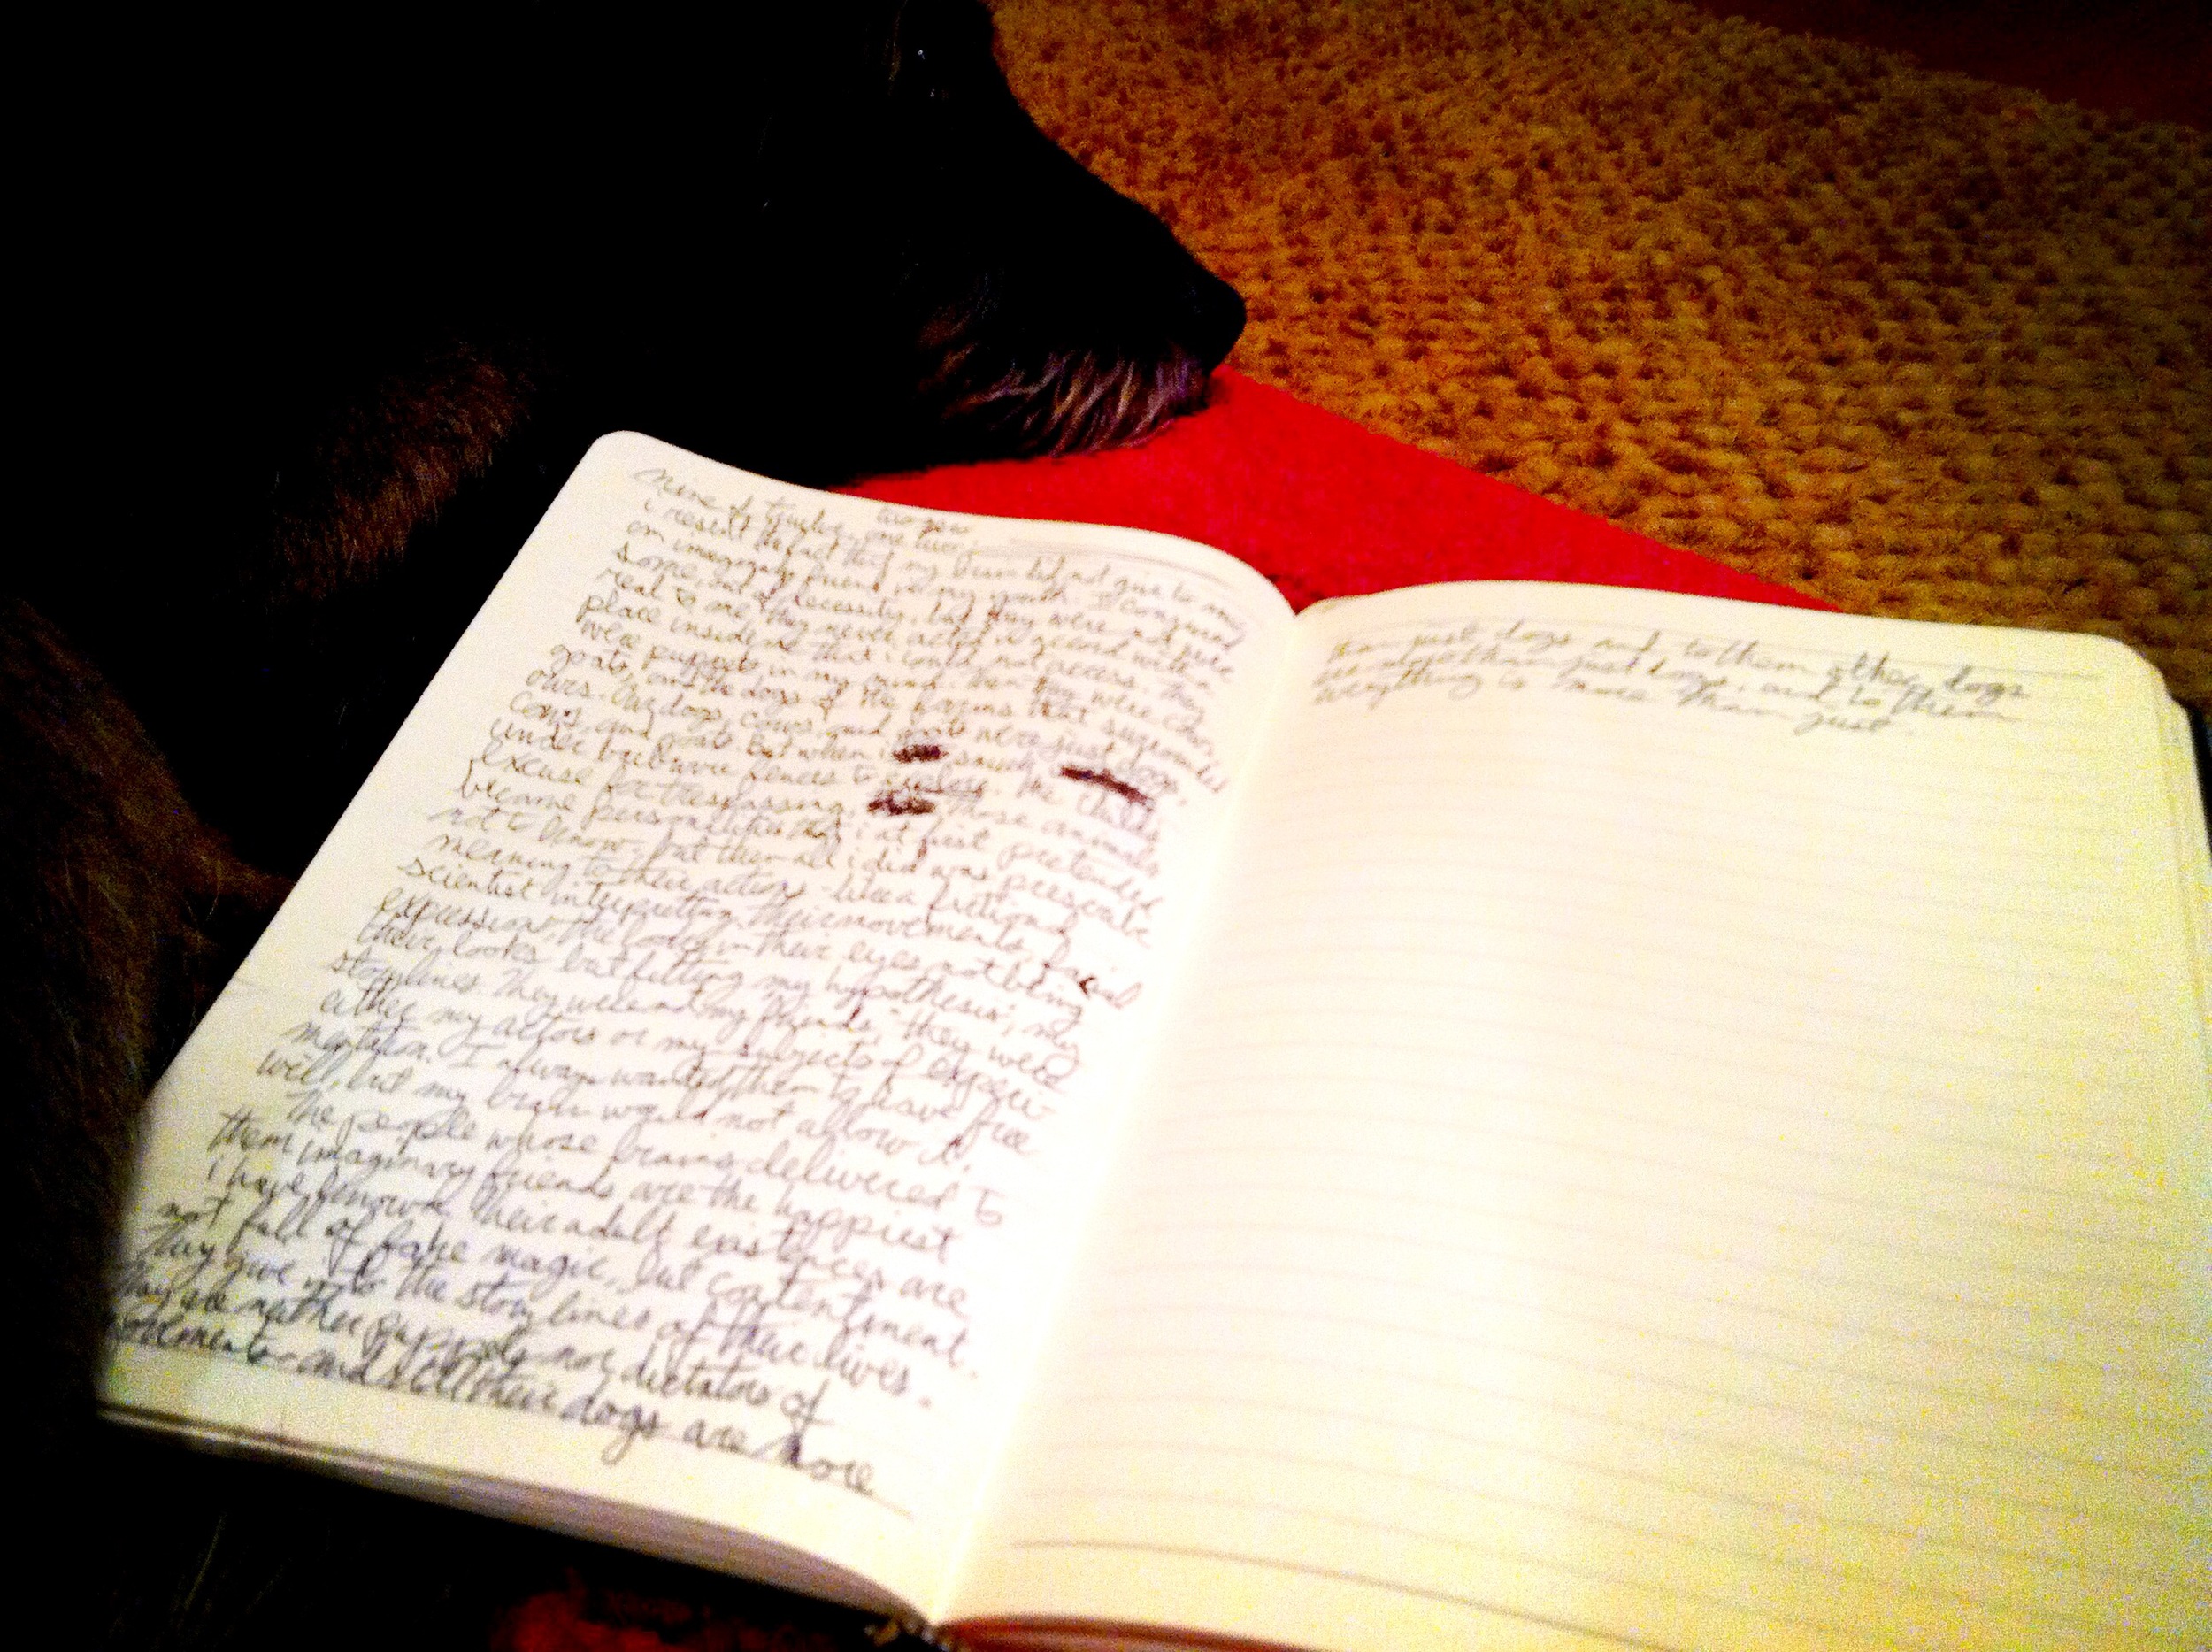 nine to twelve, one two,
two zero
i resent the fact that my brain did not give to me
an imaginary friend in my youth. I conjured
some, out of necessity, but they were not
real to me, they never acted in accord with a
place inside me that i could not access. They
were puppets in my mind. Then they were cows,
goats, and the dogs of the farms that surrounded
ours. Our dogs, cows, and goats were just dogs,
cows, and goats. But when i snuck
under barbwire fences to explore. The child's
excuse for trespassing, those animals
became personalities that i at first pretended
not to know, but then all i did was
meaning to their actions - like a fictional
scientist interpreting their movements, facial
expressions, the looks in their eyes not being
their looks but fitting my hypothesis, my
storylines. They were not my friends, they were
either my actors or my subjects of experi-
mentation. I always wanted them to have free
will, but my brain would not allow it.
The people whose brains delivered to
them imaginary friends are the happiest
i have known. Their adult existences are
not full of fake magic, but contentment.
They give in to the story lines of their lives.
They are neither puppets nor dictators of
and still their dogs are more
than just dogs and to them other dogs
are more than just dogs, and to them
everything is more than just.